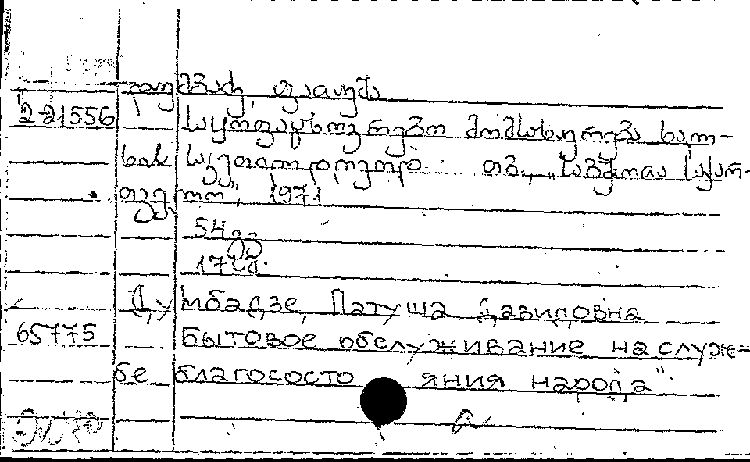 დუმბაძე, პატუშა
2-81556 საყოფაცხოვრებო მომსახურება ხალ-
ხის კეთილდღეობ თბ., „საბჭოთა საქარ-
თველო", 1971
54 გვ
17 სმ.
Думбадзе, Патуша Давидовна
65775 Бытовое обслуживание на служ-
бе благосостояния народа"